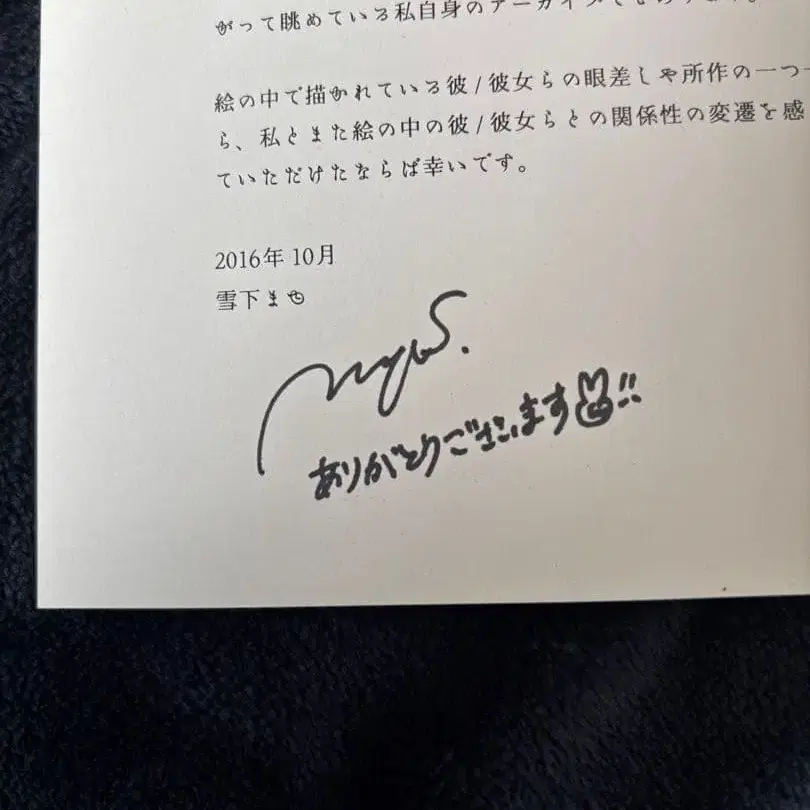 がって眺めている私自身のアーカイブでもあります。
絵の中で描かれている彼/彼女らの眼差しや所作の一つ一
ら、私とまた絵の中の彼/彼女らとの関係性の変遷を感
ていただけたならば幸いです。
2016年 10月
雪下まゆ
ありがとうございます!!